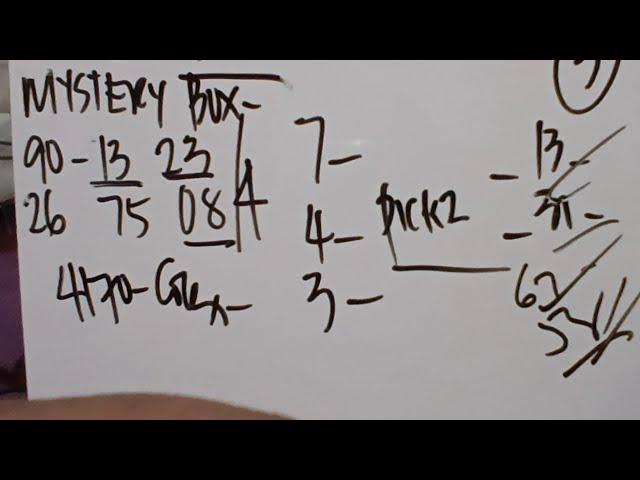 MYSTERY BOX-
90-13 23
26 75 08 4
4170-
7-
4-
3-
PICK2
- 13-
-
63